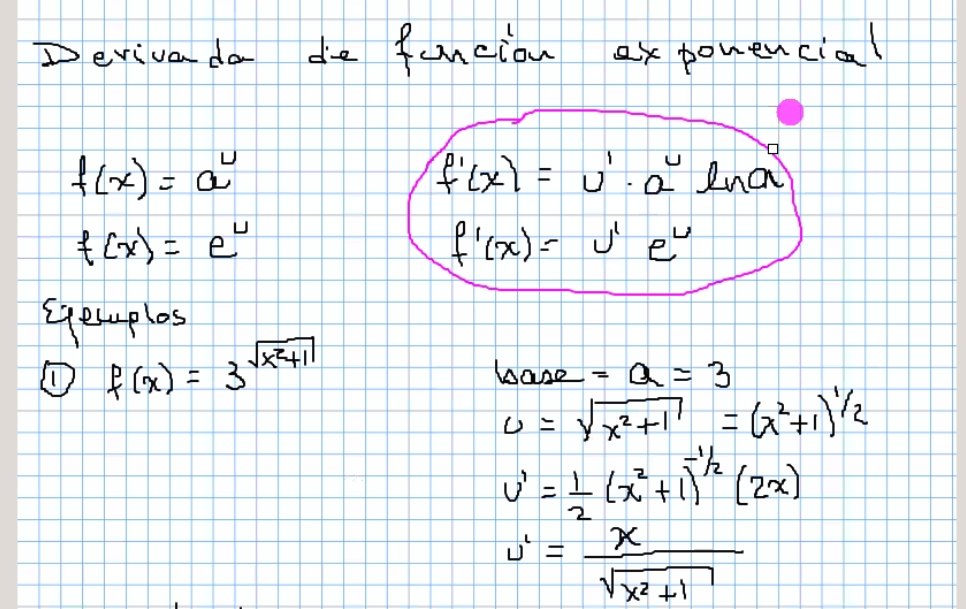 Derivada de función exponencial
f(x) = a^u f'(x) = u' · a^u ln a
f(x) = e^u f'(x) = u' e^u
Ejemplos
① f(x) = 3^√(x²+1) base = a = 3
u = √(x²+1) = (x²+1)^1/2
u' = 1/2 (x²+1)^-1/2 (2x)
u' = x / √(x²+1)